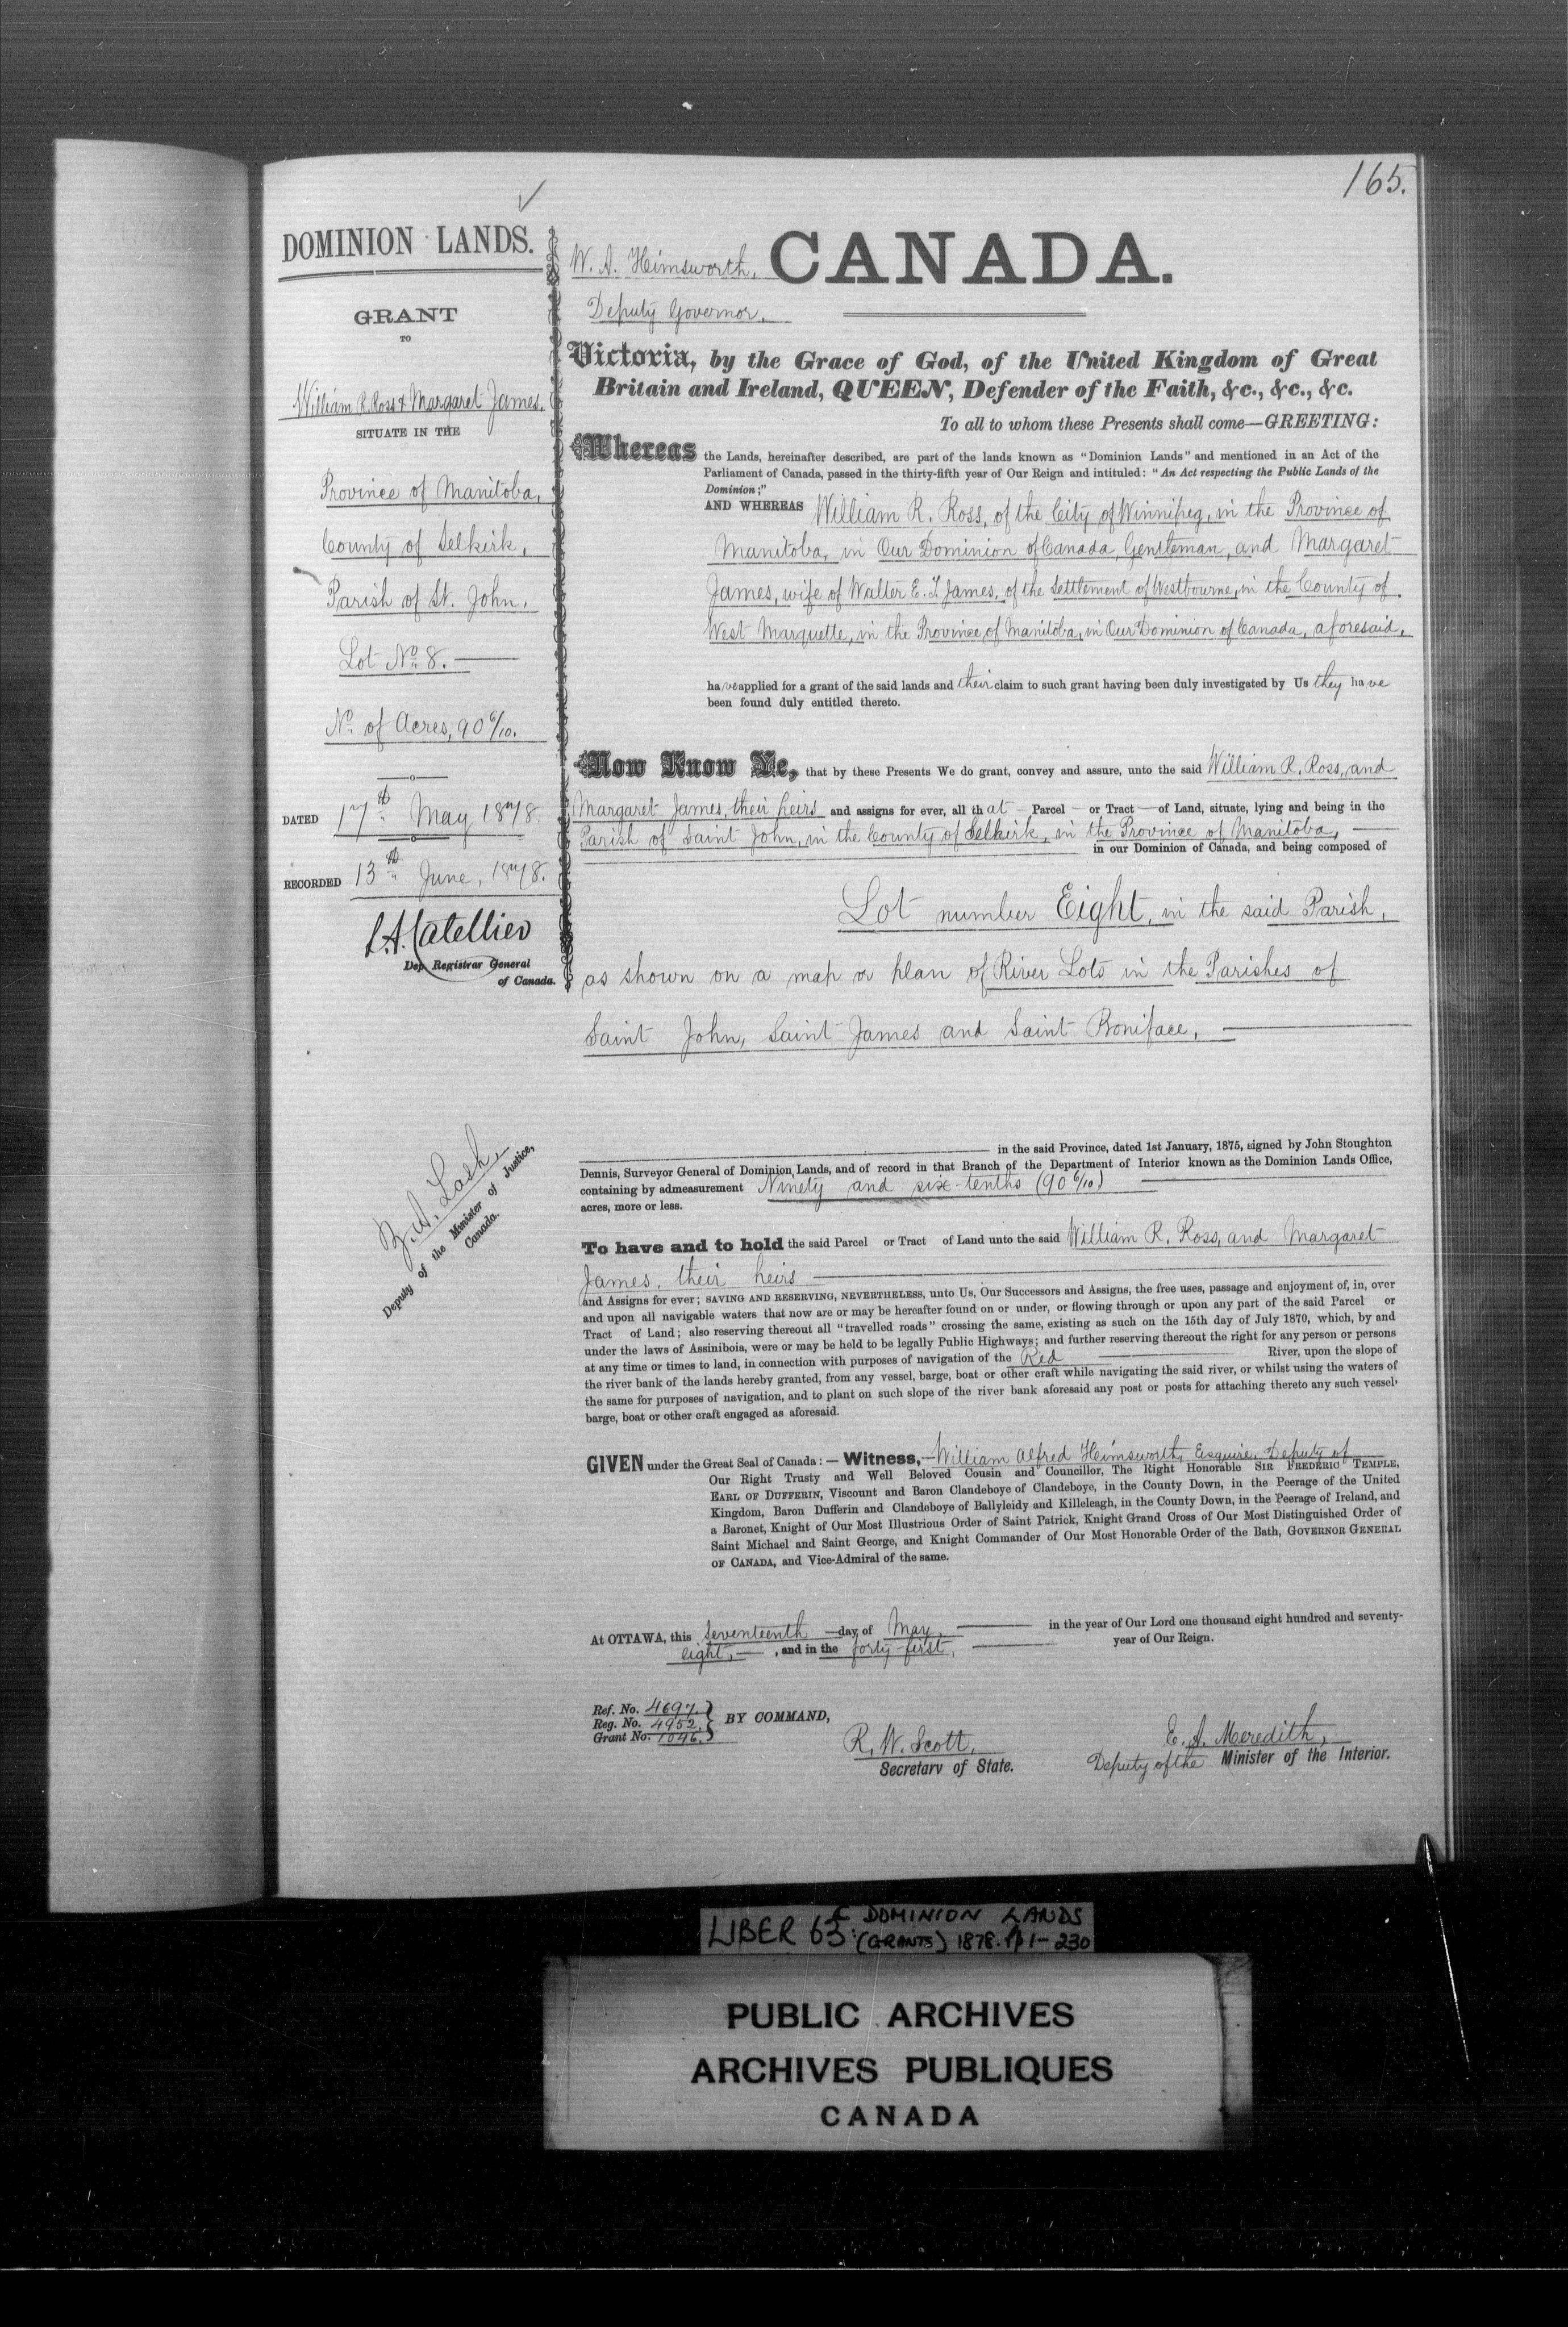 165.
DOMINION LANDS.
GRANT
TO
William R. Ross & Margaret James.
SITUATE IN THE
Province of Manitoba,
County of Selkirk,
Parish of St. John,
Lot No. 8.
No. of Acres, 90 6/10.
DATED 17th May 1878.
RECORDED 13th June, 1878.
L.A. Catellier
Dep. Registrar General
of Canada.
Z. A. Lash,
Deputy of the Minister of Justice,
Canada.
W. A. Himsworth,
Deputy Governor.
CANADA.
Victoria, by the Grace of God, of the United Kingdom of Great
Britain and Ireland, QUEEN, Defender of the Faith, &c., &c., &c.
To all to whom these Presents shall come—GREETING:
Whereas the Lands, hereinafter described, are part of the lands known as "Dominion Lands" and mentioned in an Act of the
Parliament of Canada, passed in the thirty-fifth year of Our Reign and intituled: "An Act respecting the Public Lands of the
Dominion;"
AND WHEREAS William R. Ross, of the City of Winnipeg, in the Province of
Manitoba, in Our Dominion of Canada, Gentleman, and Margaret
James, wife of Walter E. T. James, of the Settlement of Westbourne, in the County of
West Marquette, in the Province of Manitoba, in Our Dominion of Canada, aforesaid,
have applied for a grant of the said lands and their claim to such grant having been duly investigated by Us they have
been found duly entitled thereto.
Now Know Ye, that by these Presents We do grant, convey and assure, unto the said William R. Ross, and
Margaret James, their heirs and assigns for ever, all that Parcel or Tract of Land, situate, lying and being in the
Parish of Saint John, in the County of Selkirk, in the Province of Manitoba,
in our Dominion of Canada, and being composed of
Lot number Eight, in the said Parish,
as shown on a map or plan of River Lots in the Parishes of
Saint John, Saint James and Saint Boniface,
in the said Province, dated 1st January, 1875, signed by John Stoughton
Dennis, Surveyor General of Dominion Lands, and of record in that Branch of the Department of Interior known as the Dominion Lands Office,
containing by admeasurement Ninety and six-tenths (90 6/10)
acres, more or less.
To have and to hold the said Parcel or Tract of Land unto the said William R. Ross, and Margaret
James, their heirs
and Assigns for ever; SAVING AND RESERVING, NEVERTHELESS, unto Us, Our Successors and Assigns, the free uses, passage and enjoyment of, in, over
and upon all navigable waters that now are or may be hereafter found on or under, or flowing through or upon any part of the said Parcel or
Tract of Land; also reserving thereout all "travelled roads" crossing the same, existing as such on the 15th day of July 1870, which, by and
under the laws of Assiniboia, were or may be held to be legally Public Highways; and further reserving thereout the right for any person or persons
at any time or times to land, in connection with purposes of navigation of the Red River, upon the slope of
the river bank of the lands hereby granted, from any vessel, barge, boat or other craft while navigating the said river, or whilst using the waters of
the same for purposes of navigation, and to plant on such slope of the river bank aforesaid any post or posts for attaching thereto any such vessel,
barge, boat or other craft engaged as aforesaid.
GIVEN under the Great Seal of Canada: — Witness, — William Alfred Himsworth, Esquire, Deputy of
Our Right Trusty and Well Beloved Cousin and Councillor, The Right Honorable SIR FREDERIC TEMPLE,
EARL OF DUFFERIN, Viscount and Baron Clandeboye of Clandeboye, in the County Down, in the Peerage of the United
Kingdom, Baron Dufferin and Clandeboye of Ballyleidy and Killeleagh, in the County Down, in the Peerage of Ireland, and
a Baronet, Knight of Our Most Illustrious Order of Saint Patrick, Knight Grand Cross of Our Most Distinguished Order of
Saint Michael and Saint George, and Knight Commander of Our Most Honorable Order of the Bath, GOVERNOR GENERAL
OF CANADA, and Vice-Admiral of the same.
At OTTAWA, this seventeenth day of May, in the year of Our Lord one thousand eight hundred and seventy-
eight, — , and in the forty-first, year of Our Reign.
Ref. No. 4697.
Reg. No. 4952.
Grant No. 1046.
BY COMMAND,
R. W. Scott,
Secretary of State.
E. A. Meredith,
Deputy of the Minister of the Interior.
LIBER 63: DOMINION LANDS
(GRANTS) 1878. pp 1-230
PUBLIC ARCHIVES
ARCHIVES PUBLIQUES
CANADA